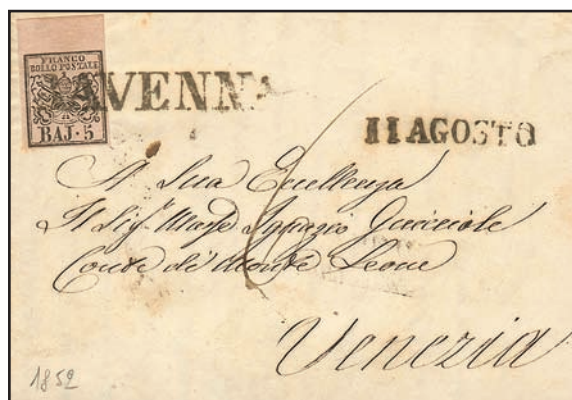 FRANCO
BOLLO POSTALE
BAJ. 5
AVENNA
11 AGOSTO
A Sua Eccellenza
Il Sig.r March Ignazio Guiccioli
Conte di Monte Leone
Venezia
1852